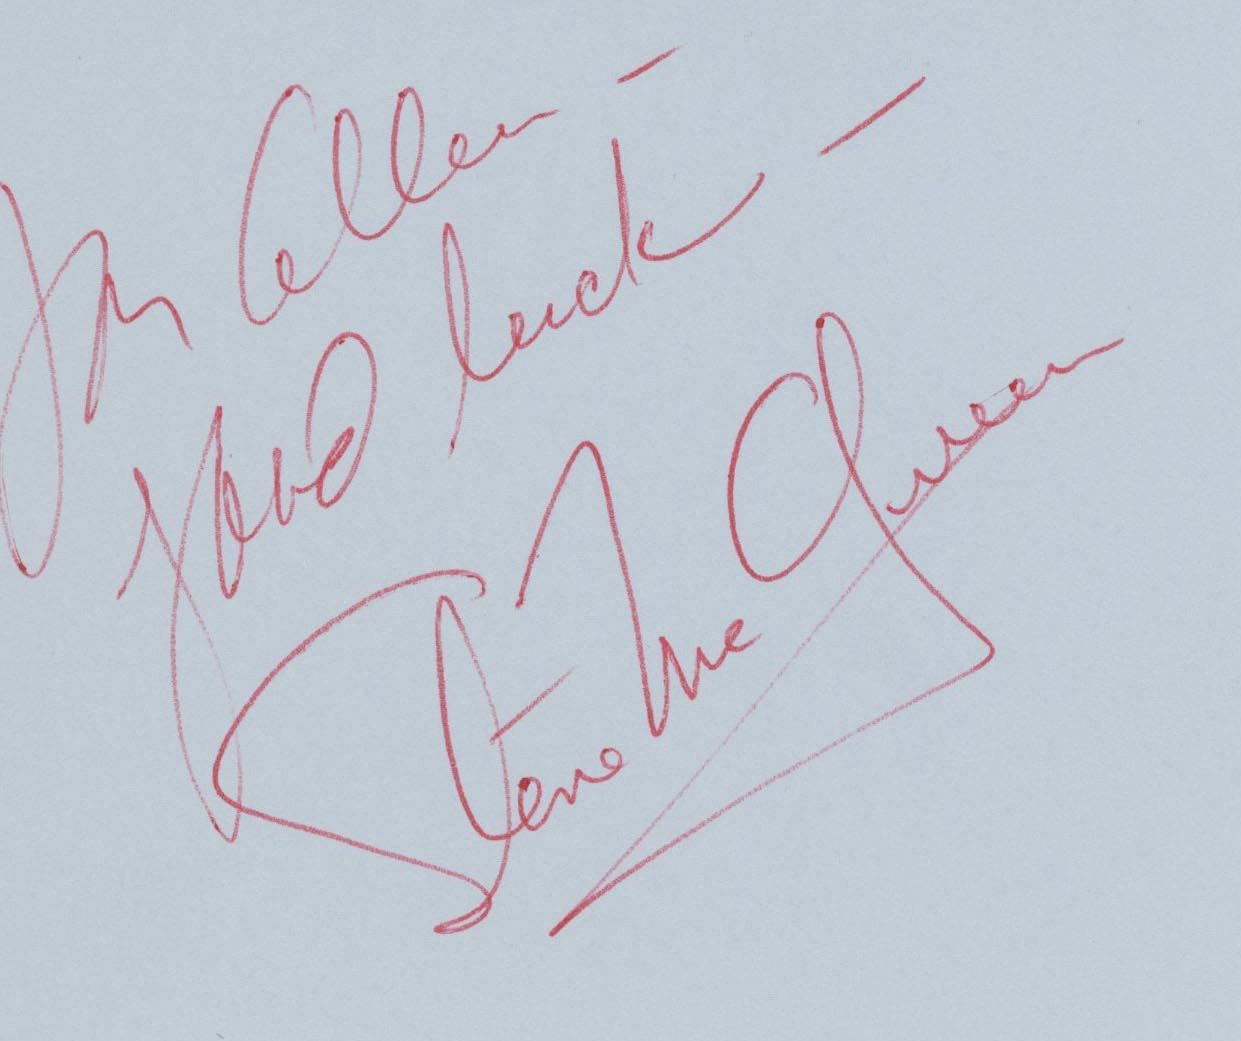 For Allen —
good luck —
Steve McQueen